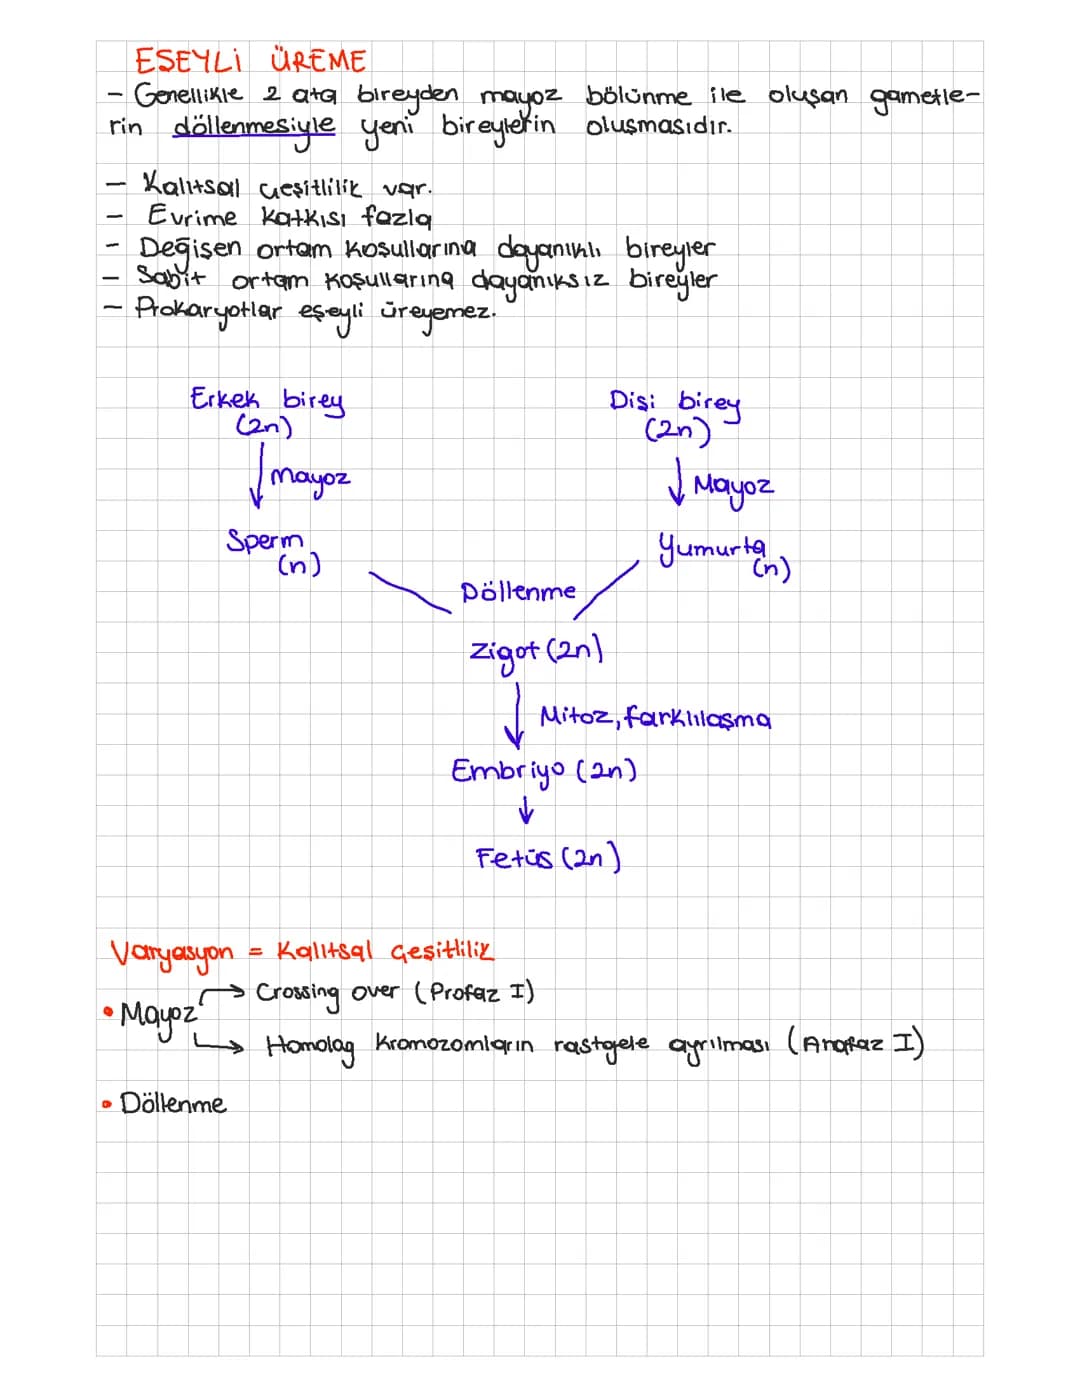 ESEYLİ ÜREME
- Genellikle 2 ata bireyden mayoz bölünme ile oluşan gametle-
rin döllenmesiyle yeni bireylerin oluşmasıdır.
- Kalıtsal çeşitlilik var.
- Evrime katkısı fazla
- Değişen ortam koşullarına dayanıklı bireyler
- Sabit ortam koşullarına dayanıksız bireyler
- Prokaryotlar eşeyli üreyemez.
Erkek birey Dişi birey
(2n) (2n)
Mayoz Mayoz
Sperm Yumurta
(n) (n)
Döllenme
Zigot (2n)
Mitoz, farklılaşma
Embriyo (2n)
Fetüs (2n)
Varyasyon = Kalıtsal Çeşitlilik
Crossing over (Profaz I)
• Mayoz
Homolog kromozomların rastgele ayrılması (Anafaz I)
• Döllenme